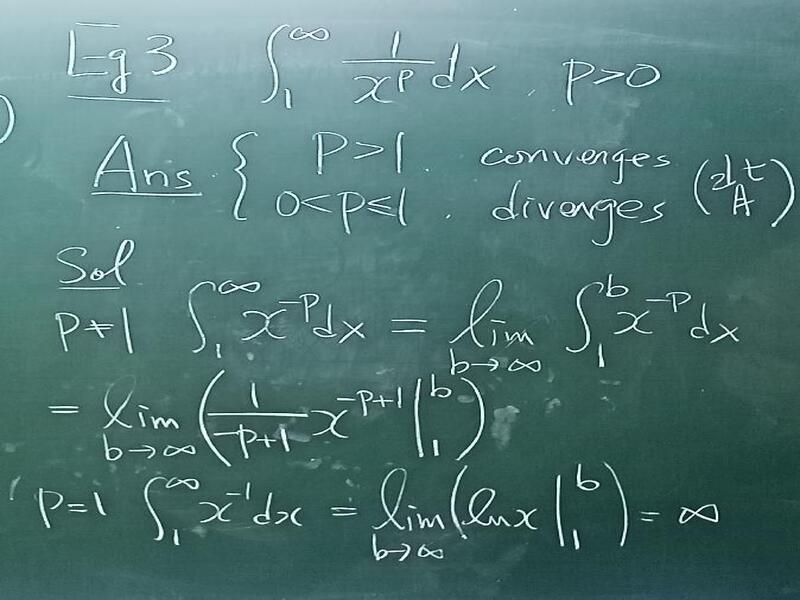 Eg 3 ∫₁^∞ 1/x^p dx , p>0
Ans { p>1 . converges
0<p≤1 . diverges
Sol
p≠1 ∫₁^∞ x^{-p} dx = lim_{b→∞} ∫₁^b x^{-p} dx
= lim_{b→∞} ( 1/(-p+1) x^{-p+1} |₁^b )
p=1 ∫₁^∞ x^{-1} dx = lim_{b→∞} ( ln x |₁^b ) = ∞